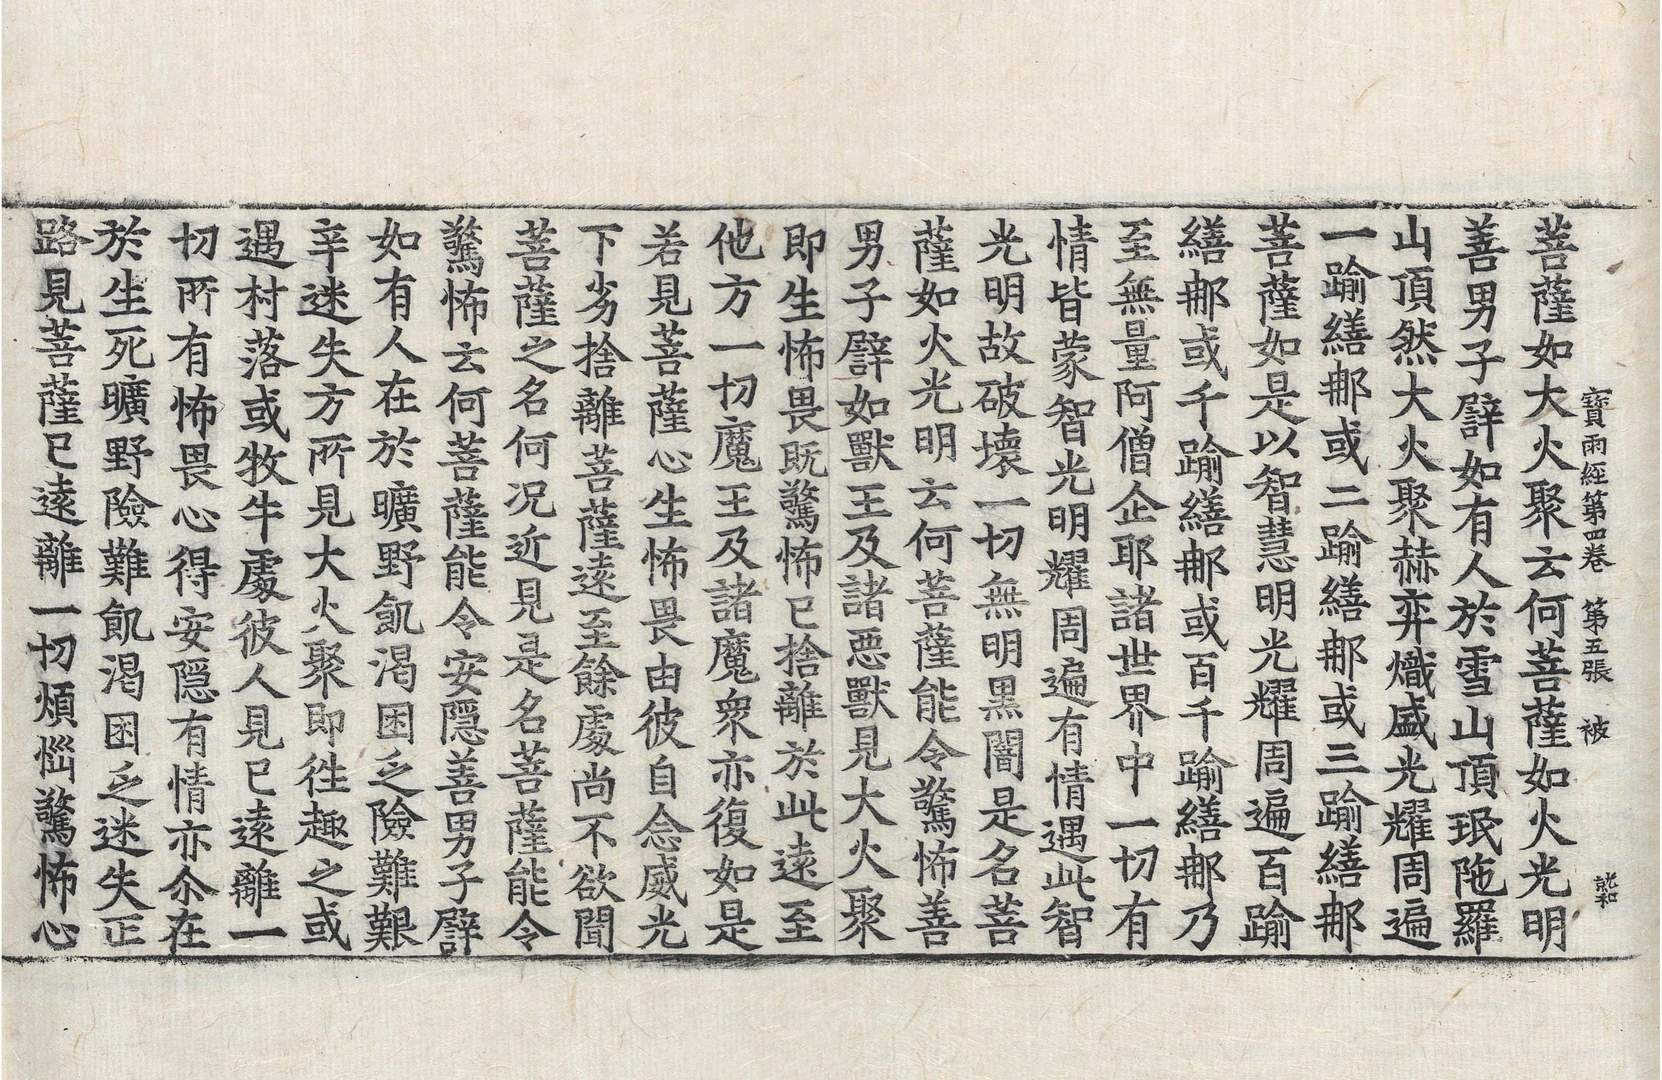 寶雨經第四卷 第五張 被
就和
菩薩如大火聚云何菩薩如火光明
善男子譬如有人於雪山頂珉陁羅
山頂然大火聚赫弈熾盛光耀周遍
一踰繕那或二踰繕那或三踰繕那
菩薩如是以智慧明光耀周遍百踰
繕那或千踰繕那或百千踰繕那乃
至無量阿僧企耶諸世界中一切有
情皆蒙智光明耀周遍有情遇此智
光明故破壞一切無明黑闇是名菩
薩如火光明云何菩薩能令驚怖善
男子譬如獸王及諸惡獸見大火聚
即生怖畏既驚怖已捨離於此遠至
他方一切魔王及諸魔衆亦復如是
若見菩薩心生怖畏由彼自念威光
下劣捨離菩薩遠至餘處尚不欲聞
菩薩之名何况近見是名菩薩能令
驚怖云何菩薩能令安隱善男子譬
如有人在於曠野飢渴困乏險難艱
辛迷失方所見大火聚即往趣之或
遇村落或牧牛處彼人見已遠離一
切所有怖畏心得安隱有情亦尒在
於生死曠野險難飢渴困乏迷失正
路見菩薩已遠離一切煩惱驚怖心